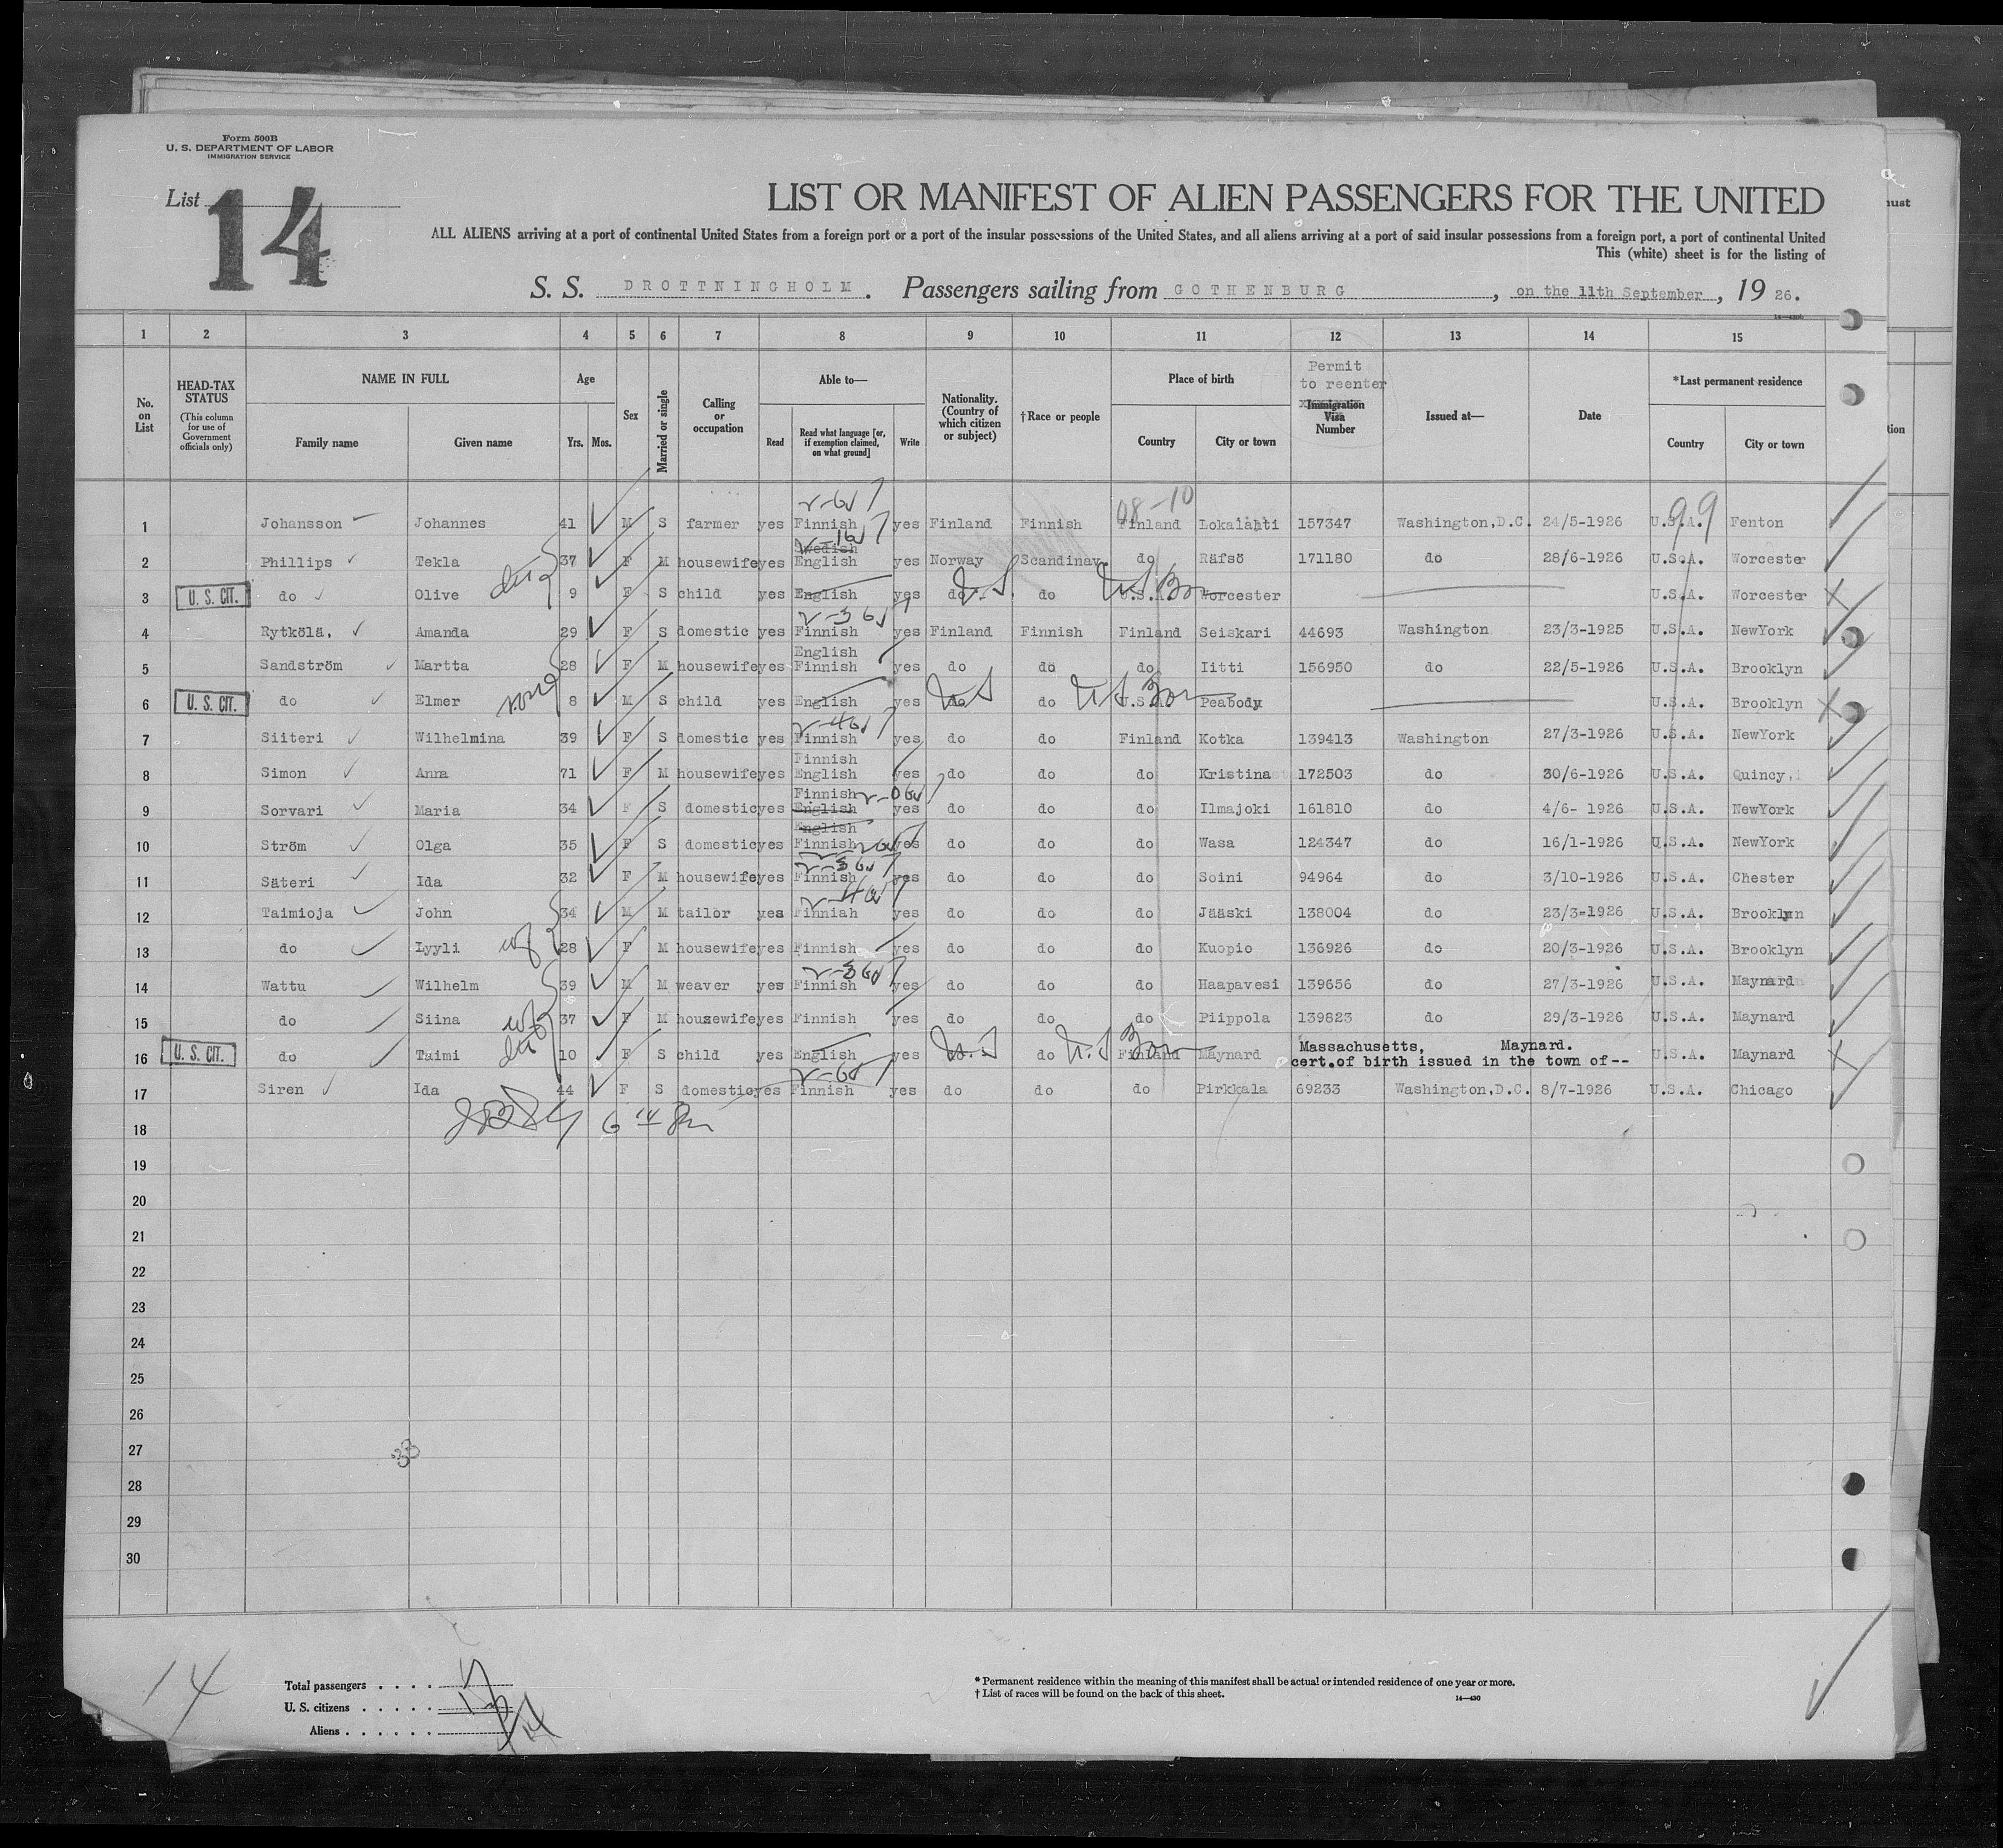 Form 500B
U. S. DEPARTMENT OF LABOR
IMMIGRATION SERVICE
List 14
LIST OR MANIFEST OF ALIEN PASSENGERS FOR THE UNITED
ALL ALIENS arriving at a port of continental United States from a foreign port or a port of the insular possessions of the United States, and all aliens arriving at a port of said insular possessions from a foreign port, a port of continental United
This (white) sheet is for the listing of
S. S. DROTTNINGHOLM. Passengers sailing from GOTHENBURG, on the 11th September, 19 26.
1 2 3 4 5 6 7 8 9 10 11 12 13 14 15
No. on List
HEAD-TAX STATUS (This column for use of Government officials only)
NAME IN FULL Family name Given name
Age Yrs. Mos.
Sex
Married or single
Calling or occupation
Able to— Read Read what language [or, if exemption claimed, on what ground] Write
Nationality. (Country of which citizen or subject)
†Race or people
Place of birth Country City or town
Permit to reenter Immigration Visa Number
Issued at—
Date
*Last permanent residence Country City or town
08-10 99
1 Johansson Johannes 41 M S farmer yes Finnish yes Finland Finnish Finland Lokalahti 157347 Washington,D.C. 24/5-1926 U.S.A. Fenton
2 Phillips Tekla 37 F M housewife yes Swedish English yes Norway Scandinav. do Räfsö 171180 do 28/6-1926 U.S.A. Worcester
3 U. S. CIT. do Olive 9 F S child yes English yes do U.S. do U.S.A. U.S. Born Worcester U.S.A. Worcester
4 Rytkölä, Amanda 29 F S domestic yes Finnish yes Finland Finnish Finland Seiskari 44693 Washington 23/3-1925 U.S.A. NewYork
5 Sandström Martta 28 F M housewife yes English Finnish yes do do do Iitti 156950 do 22/5-1926 U.S.A. Brooklyn
6 U. S. CIT. do Elmer 8 M S child yes English yes do U.S do U.S.A. U.S. Born Peabody U.S.A. Brooklyn
7 Siiteri Wilhelmina 39 F S domestic yes Finnish yes do do Finland Kotka 139413 Washington 27/3-1926 U.S.A. NewYork
8 Simon Anna 71 F M housewife yes Finnish English yes do do do Kristina 172503 do 30/6-1926 U.S.A. Quincy,
9 Sorvari Maria 34 F S domestic yes Finnish English yes do do do Ilmajoki 161810 do 4/6- 1926 U.S.A. NewYork
10 Ström Olga 35 F S domestic yes English Finnish yes do do do Wasa 124347 do 16/1-1926 U.S.A. NewYork
11 Säteri Ida 32 F M housewife yes Finnish yes do do do Soini 94964 do 3/10-1926 U.S.A. Chester
12 Taimioja John 34 M M tailor yes Finniah yes do do do Jääski 138004 do 23/3-1926 U.S.A. Brooklyn
13 do Lyyli wf 28 F M housewife yes Finnish yes do do do Kuopio 136926 do 20/3-1926 U.S.A. Brooklyn
14 Wattu Wilhelm 39 M M weaver yes Finnish yes do do do Haapavesi 139656 do 27/3-1926 U.S.A. Maynard
15 do Siina wf 37 F M housewife yes Finnish yes do do do Piippola 139823 do 29/3-1926 U.S.A. Maynard
16 U. S. CIT. do Taimi 10 F S child yes English yes do U.S do Finland U.S Born Maynard Massachusetts, Maynard. cert.of birth issued in the town of-- U.S.A. Maynard
17 Siren Ida 44 F S domestic yes Finnish yes do do do Pirkkala 69233 Washington,D.C. 8/7-1926 U.S.A. Chicago
18
19
20
21
22
23
24
25
26
27
28
29
30
33
14
Total passengers . . . . 17
U. S. citizens . . . . . 3
Aliens . . . . . . 14
* Permanent residence within the meaning of this manifest shall be actual or intended residence of one year or more.
† List of races will be found on the back of this sheet.
14—430